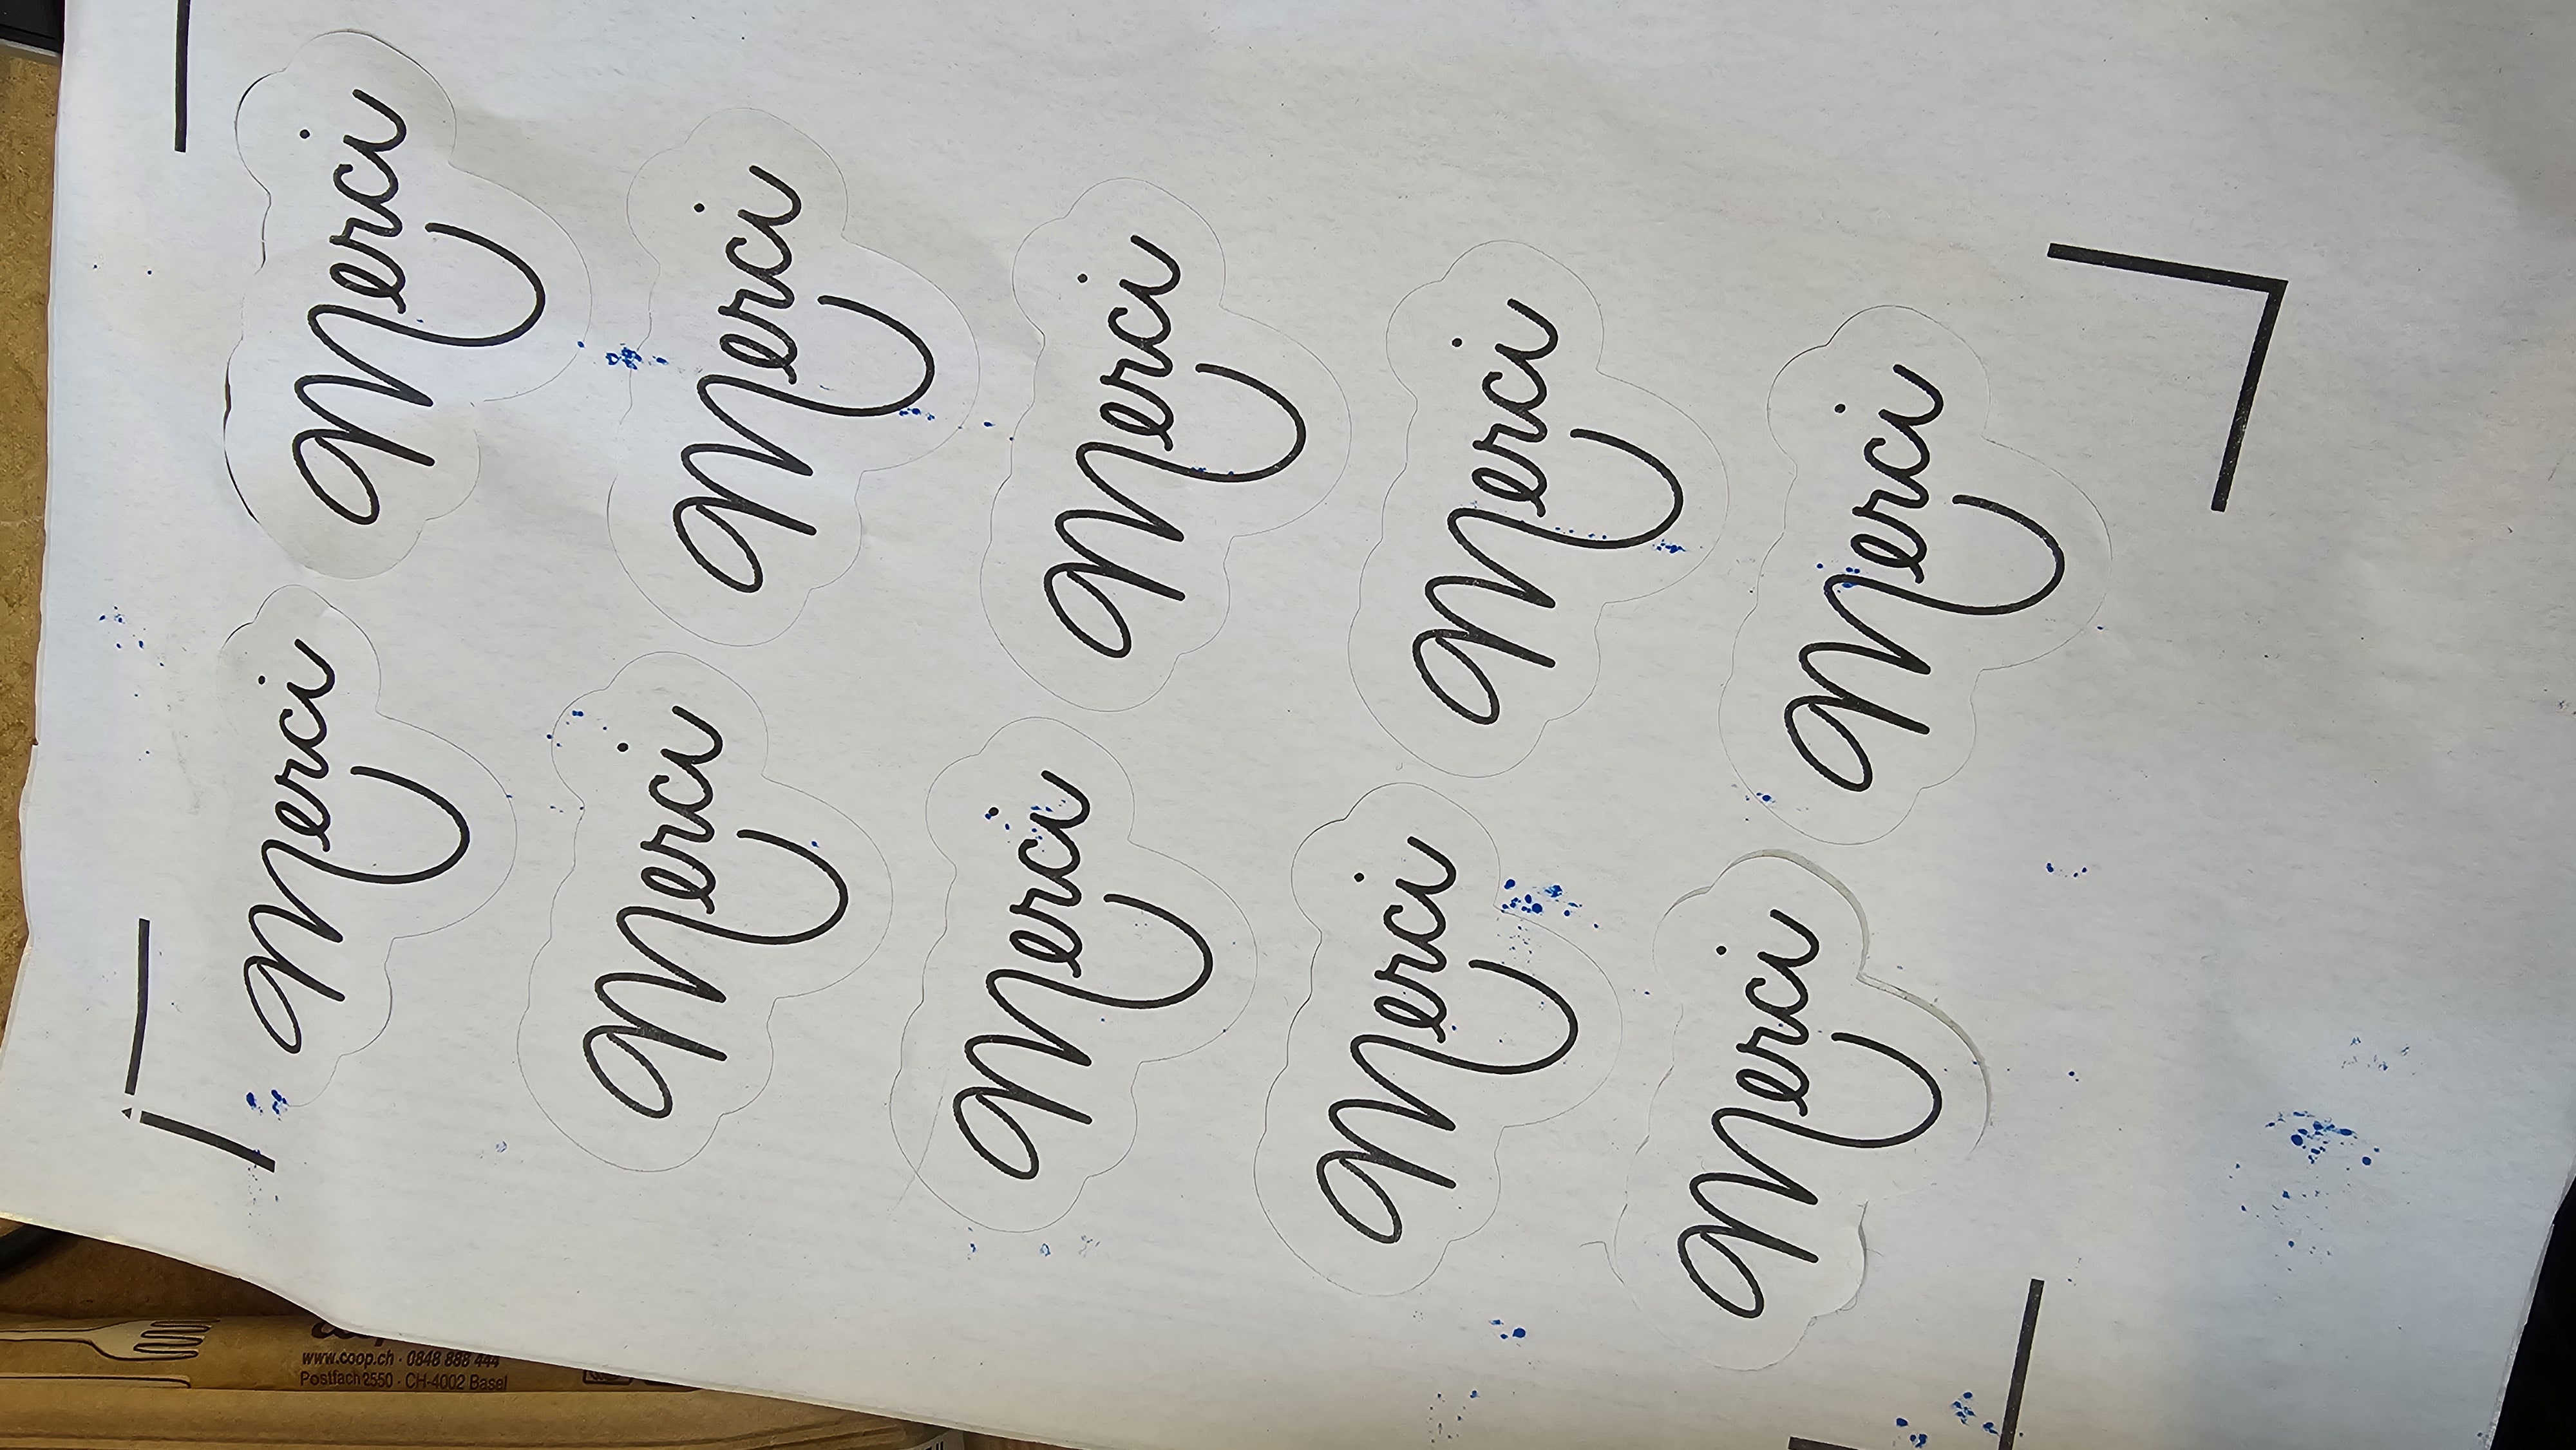 Merci
Merci
Merci
Merci
Merci
Merci
Merci
Merci
Merci
Merci
www.coop.ch · 0848 888 444
Postfach 2550 · CH-4002 Basel